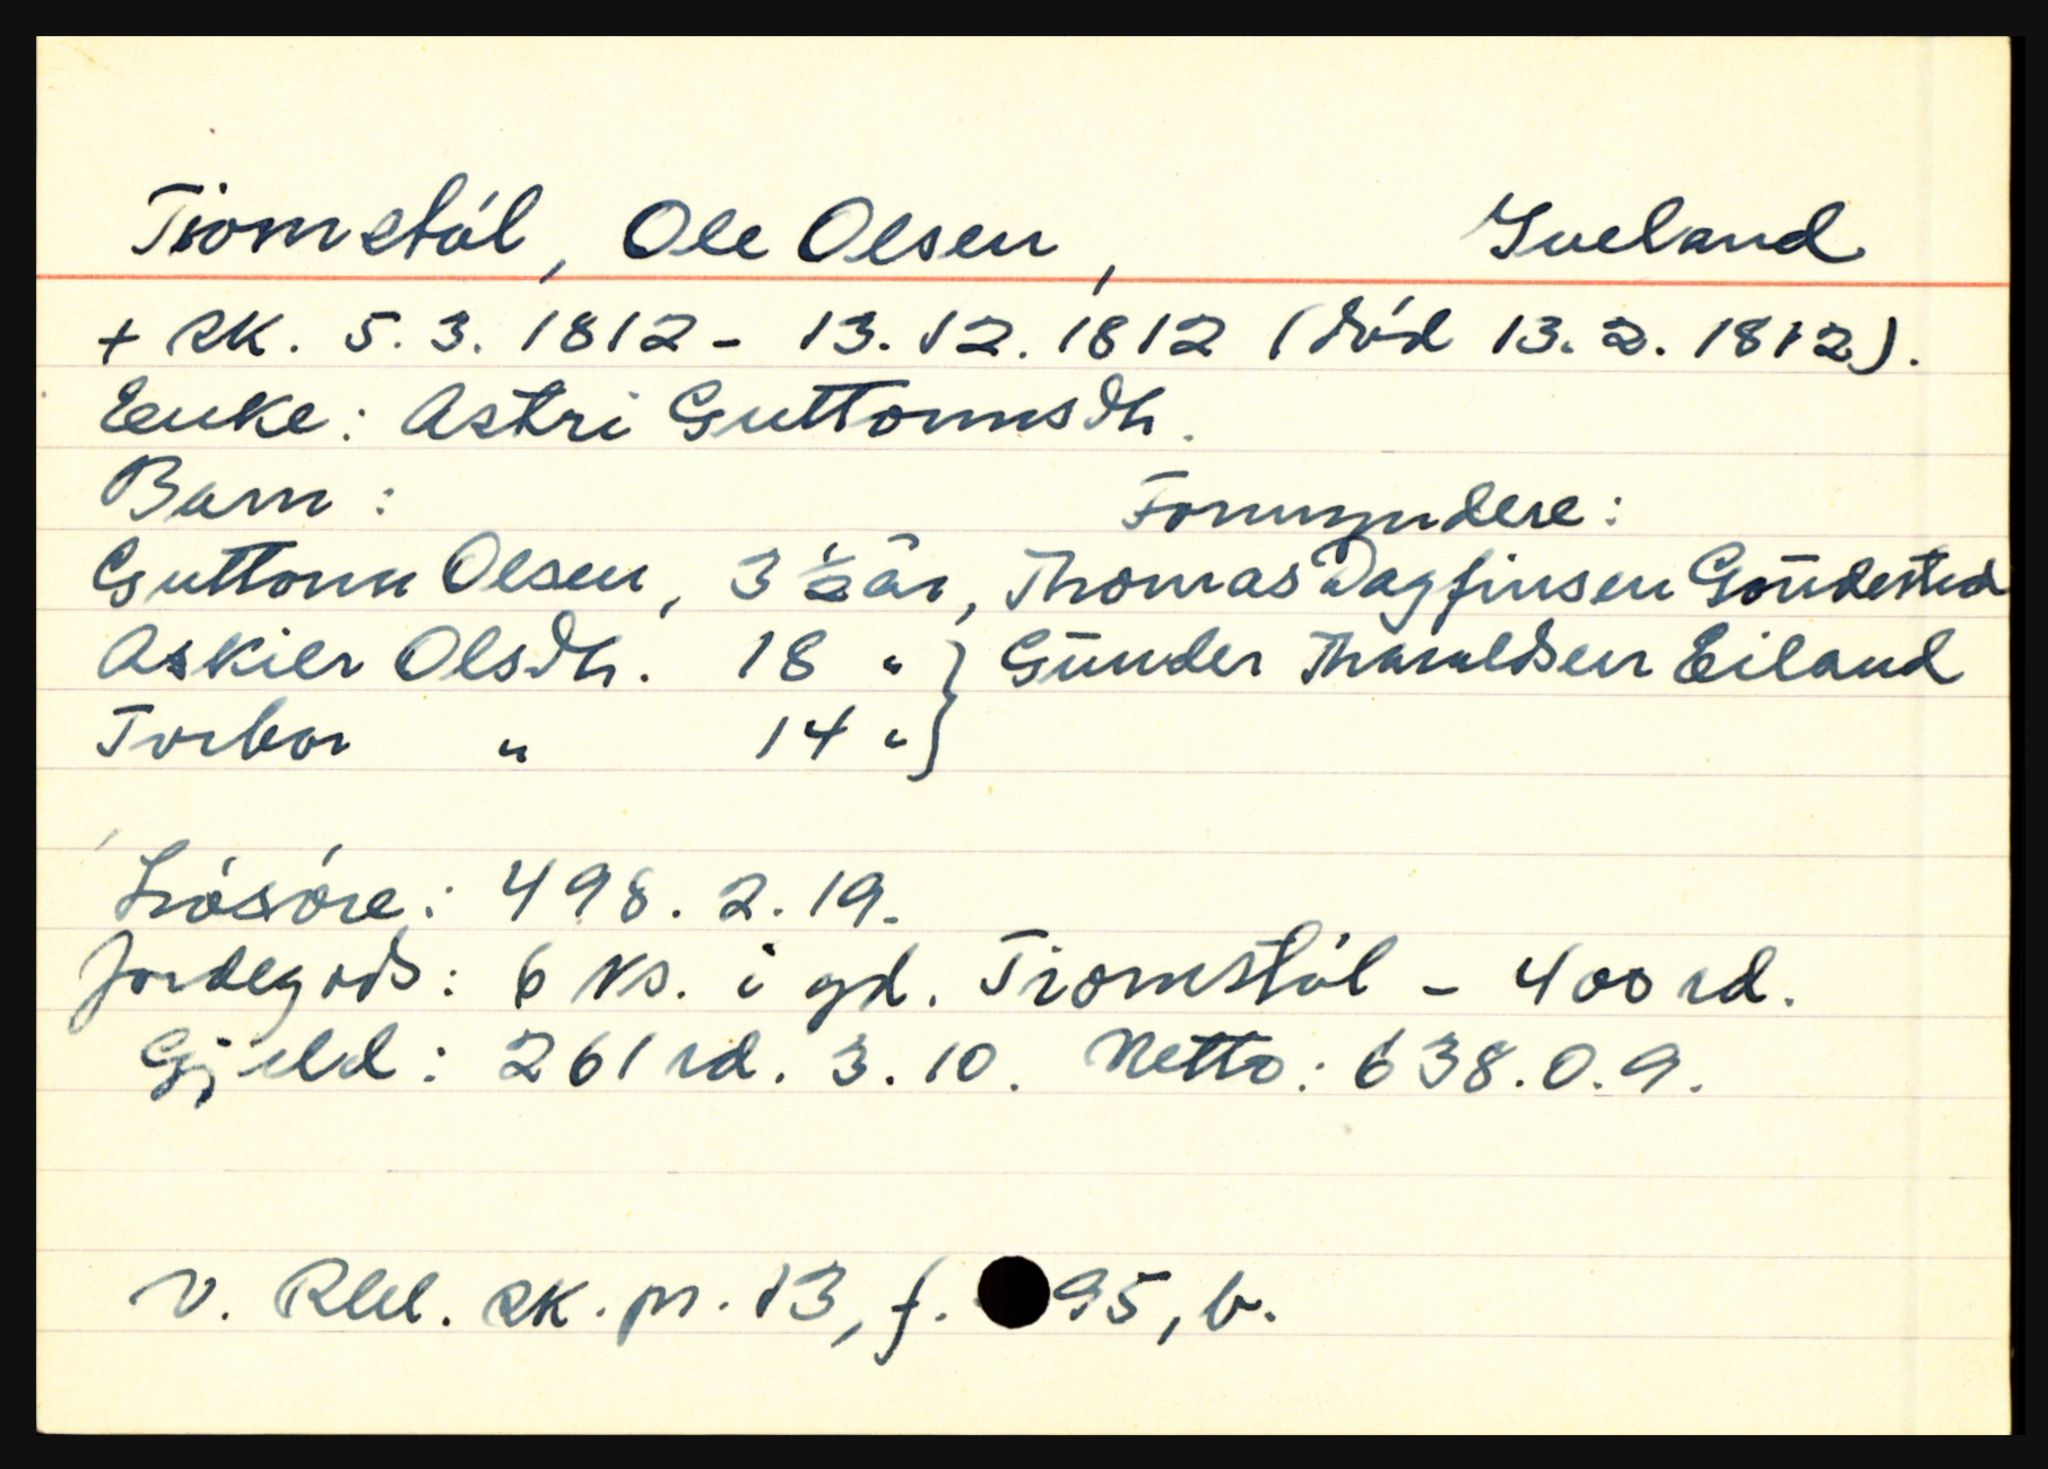 Tiomstöl, Ole Olsen, Iveland
+ SK. 5.3.1812 - 13.12.1812 (död 13.2.1812).
Enke: Astri Guttormsdtr.
Barn: Formyndere:
Guttorm Olsen, 3 ½ år, Thomas Dagfinsen
Askier Olsdtr. 18 " } Gunder Tharaldsen Eiland
Torbor " 14 " }
Lösöre: 498.2.19.
Jordegods: 6 ks. i gd. Tiomstöl - 400 rd.
Gjeld: 261 rd. 3.10. Netto: 638.0.9.
V. Rbl. SK. pr. 13, f. 95, b.